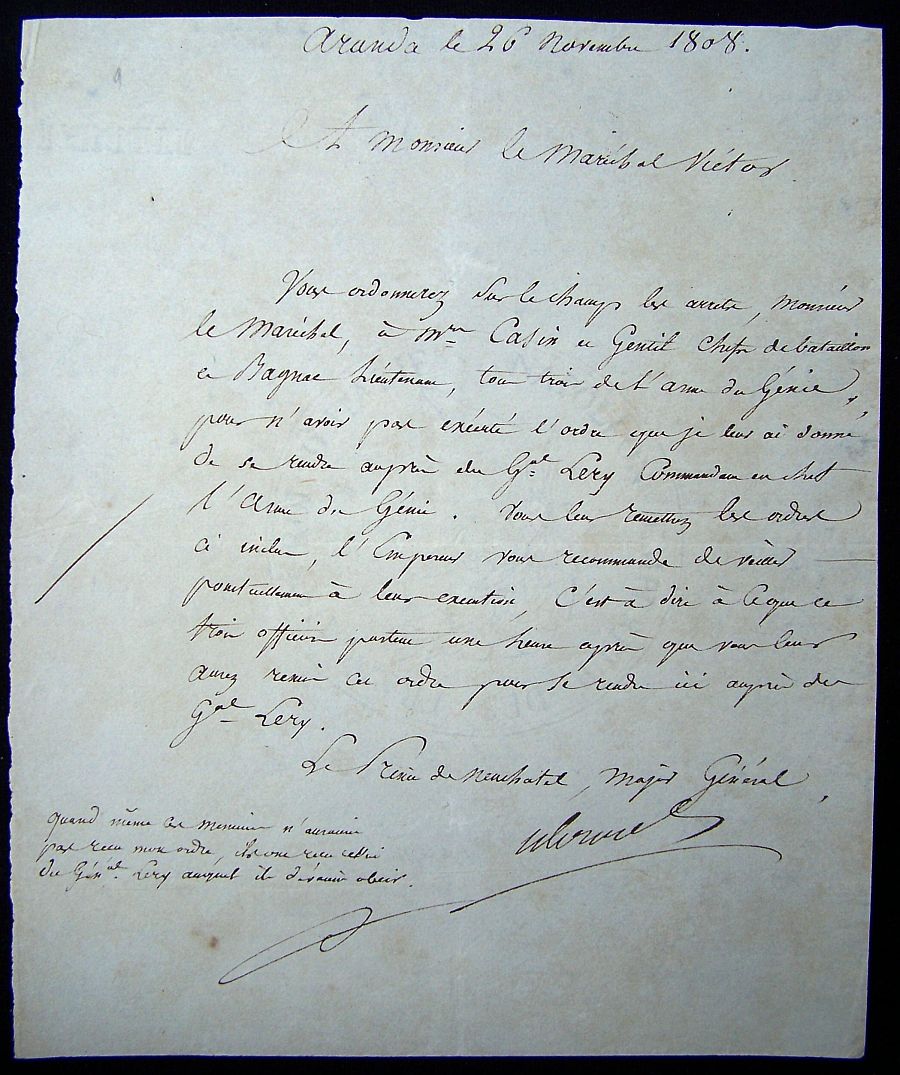 Aranda le 26 Novembre 1808.
A Monsieur le Maréchal Victor
Vous ordonnerez sur le champ les arrets, Monsieur
le Maréchal, à Mrs Cazin et Gentil Chefs de bataillon
et Bagnac Lieutenant, tous trois de l'arme du Génie,
pour n'avoir pas exécuté l'ordre que je leur ai donné
de se rendre auprès du Gal Lery Commandant en chef
l'Arme du Génie. Vous leur remettrez les ordres
ci inclus, l'Empereur vous recommande de veiller
ponctuellement à leur execution, c'est à dire à ce que ces
trois officiers partent une heure après que vous leur
aurez remis ces ordres pour se rendre ici auprès du
Gal Lery.
Le Prince de Neuchatel, Major Général,
quand même ces Messieurs n'auraient
pas reçu mon ordre, ils ont reçu celui
du Génal Lery auquel ils devaient obeir.